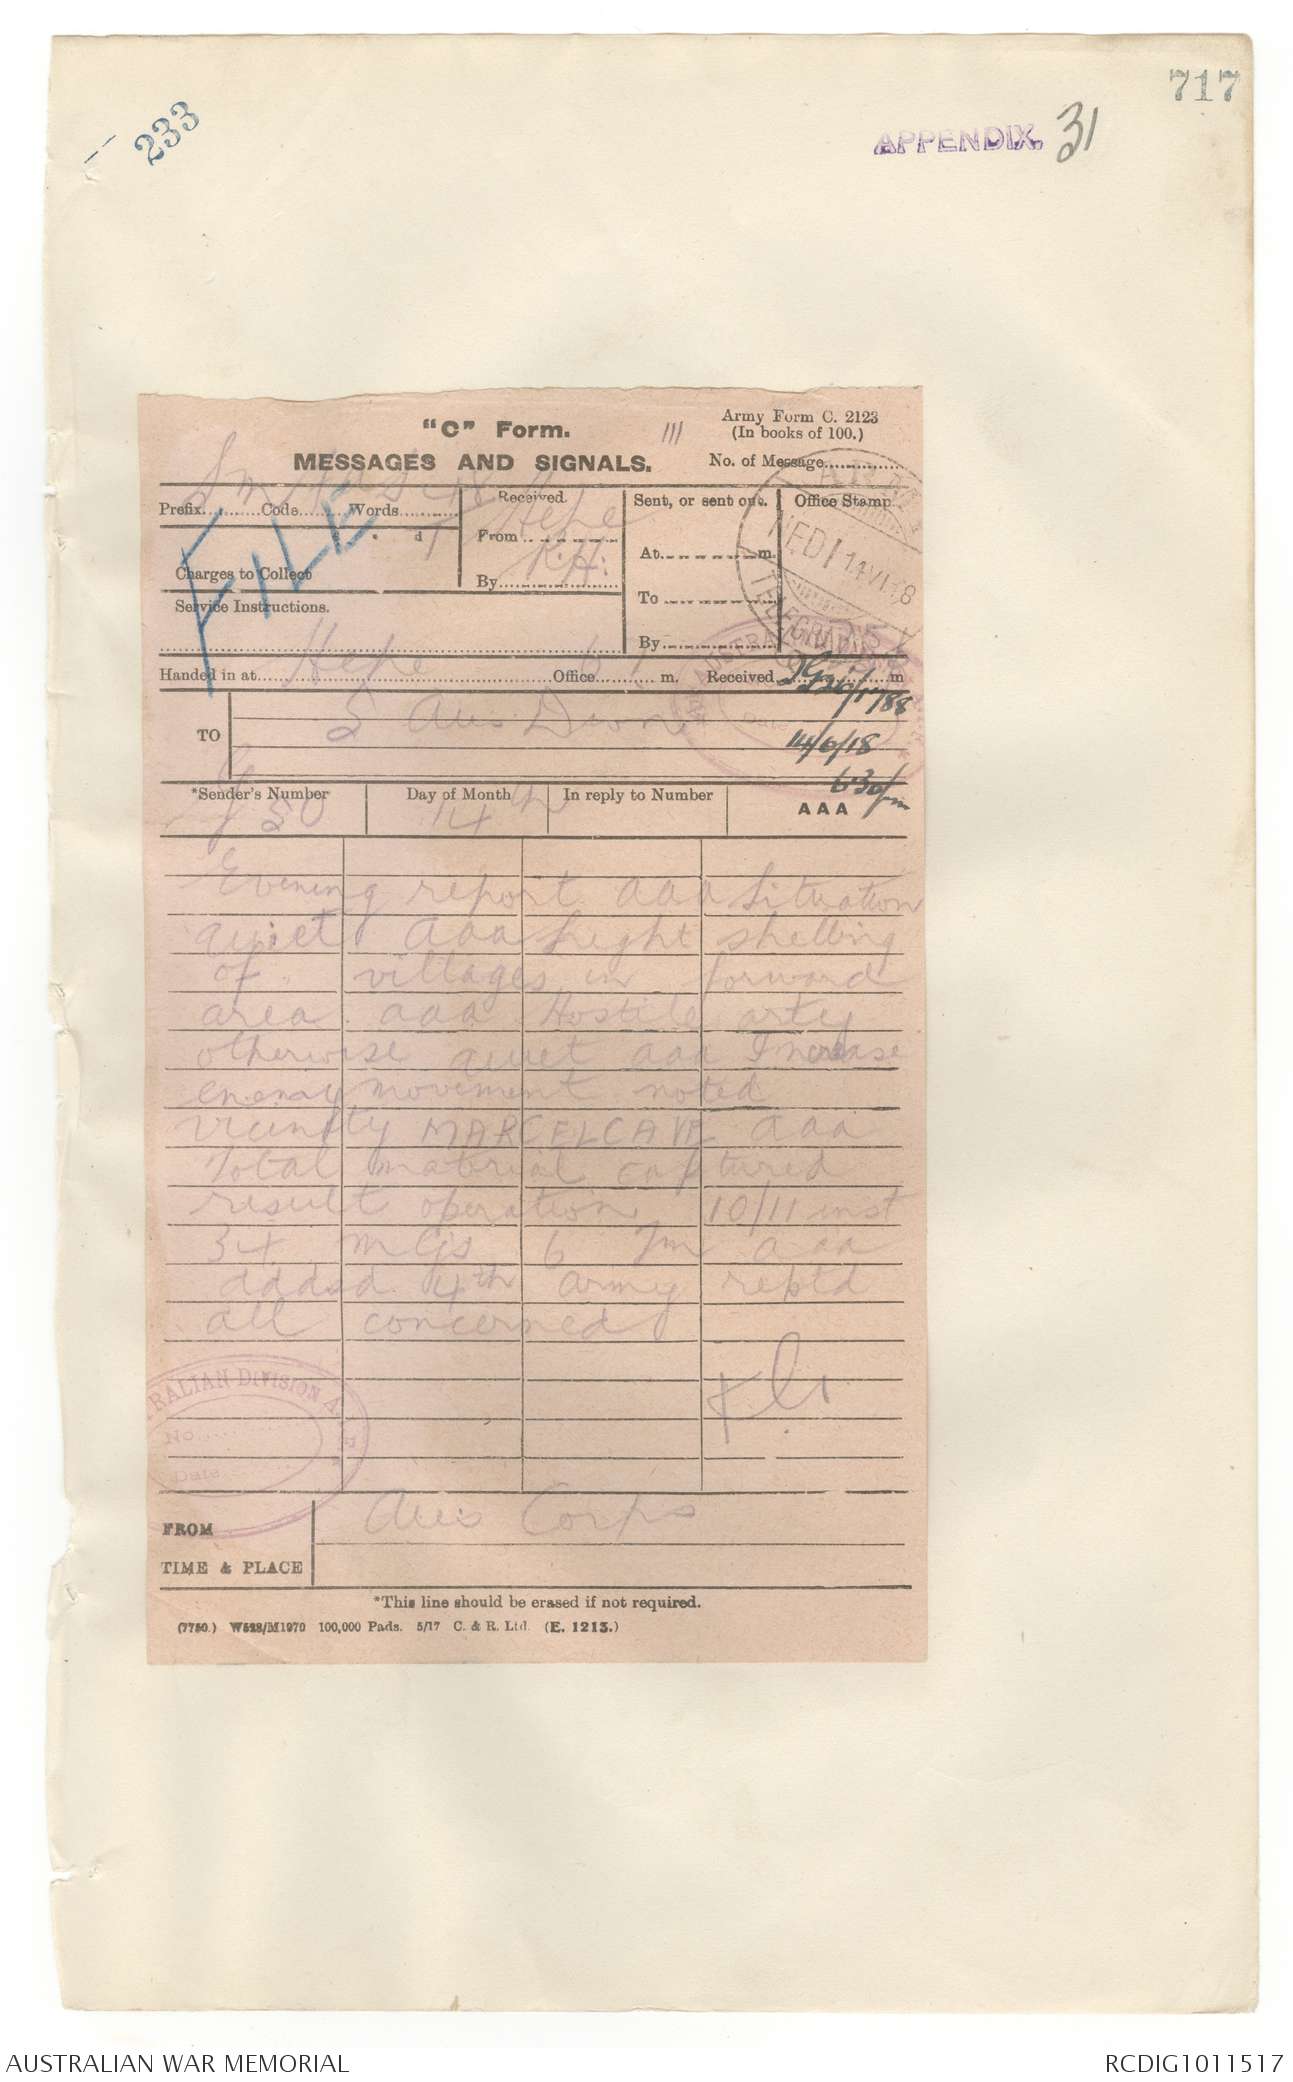 717
233
APPENDIX. 31
"C" Form.
MESSAGES AND SIGNALS.
111
Army Form C. 2123
(In books of 100.)
No. of Message
Prefix Sm Code Words 48
Charges to Collect
FILE
Received.
From Hepe
By R.H.
Sent, or sent out.
At m.
To
By
Office Stamp
ARMY
14.VI.18
TELEGRAPHS
Service Instructions.
Handed in at Hepe Office 6 m. Received m
14/6/18
6.30pm
TO 5 Aus Divn
*Sender's Number Day of Month In reply to Number AAA
G 50 14th
Evening report aaa Situation
quiet aaa Light shelling
of villages in forward
area aaa Hostile arty
otherwise quiet aaa Increase
enemy movement noted
vicinity MARCELCAVE aaa
Total material captured
result operation 10/11 inst
34 MGs 6 Tm aaa
addsd 4th army reptd
all concerned
RALIAN DIVISION A.I.F.
No
Date
FROM Aus Corps
TIME & PLACE
*This line should be erased if not required.
(7750.) W528/M1970 100,000 Pads. 5/17 C. & R. Ltd. (E. 1213.)
AUSTRALIAN WAR MEMORIAL
RCDIG1011517